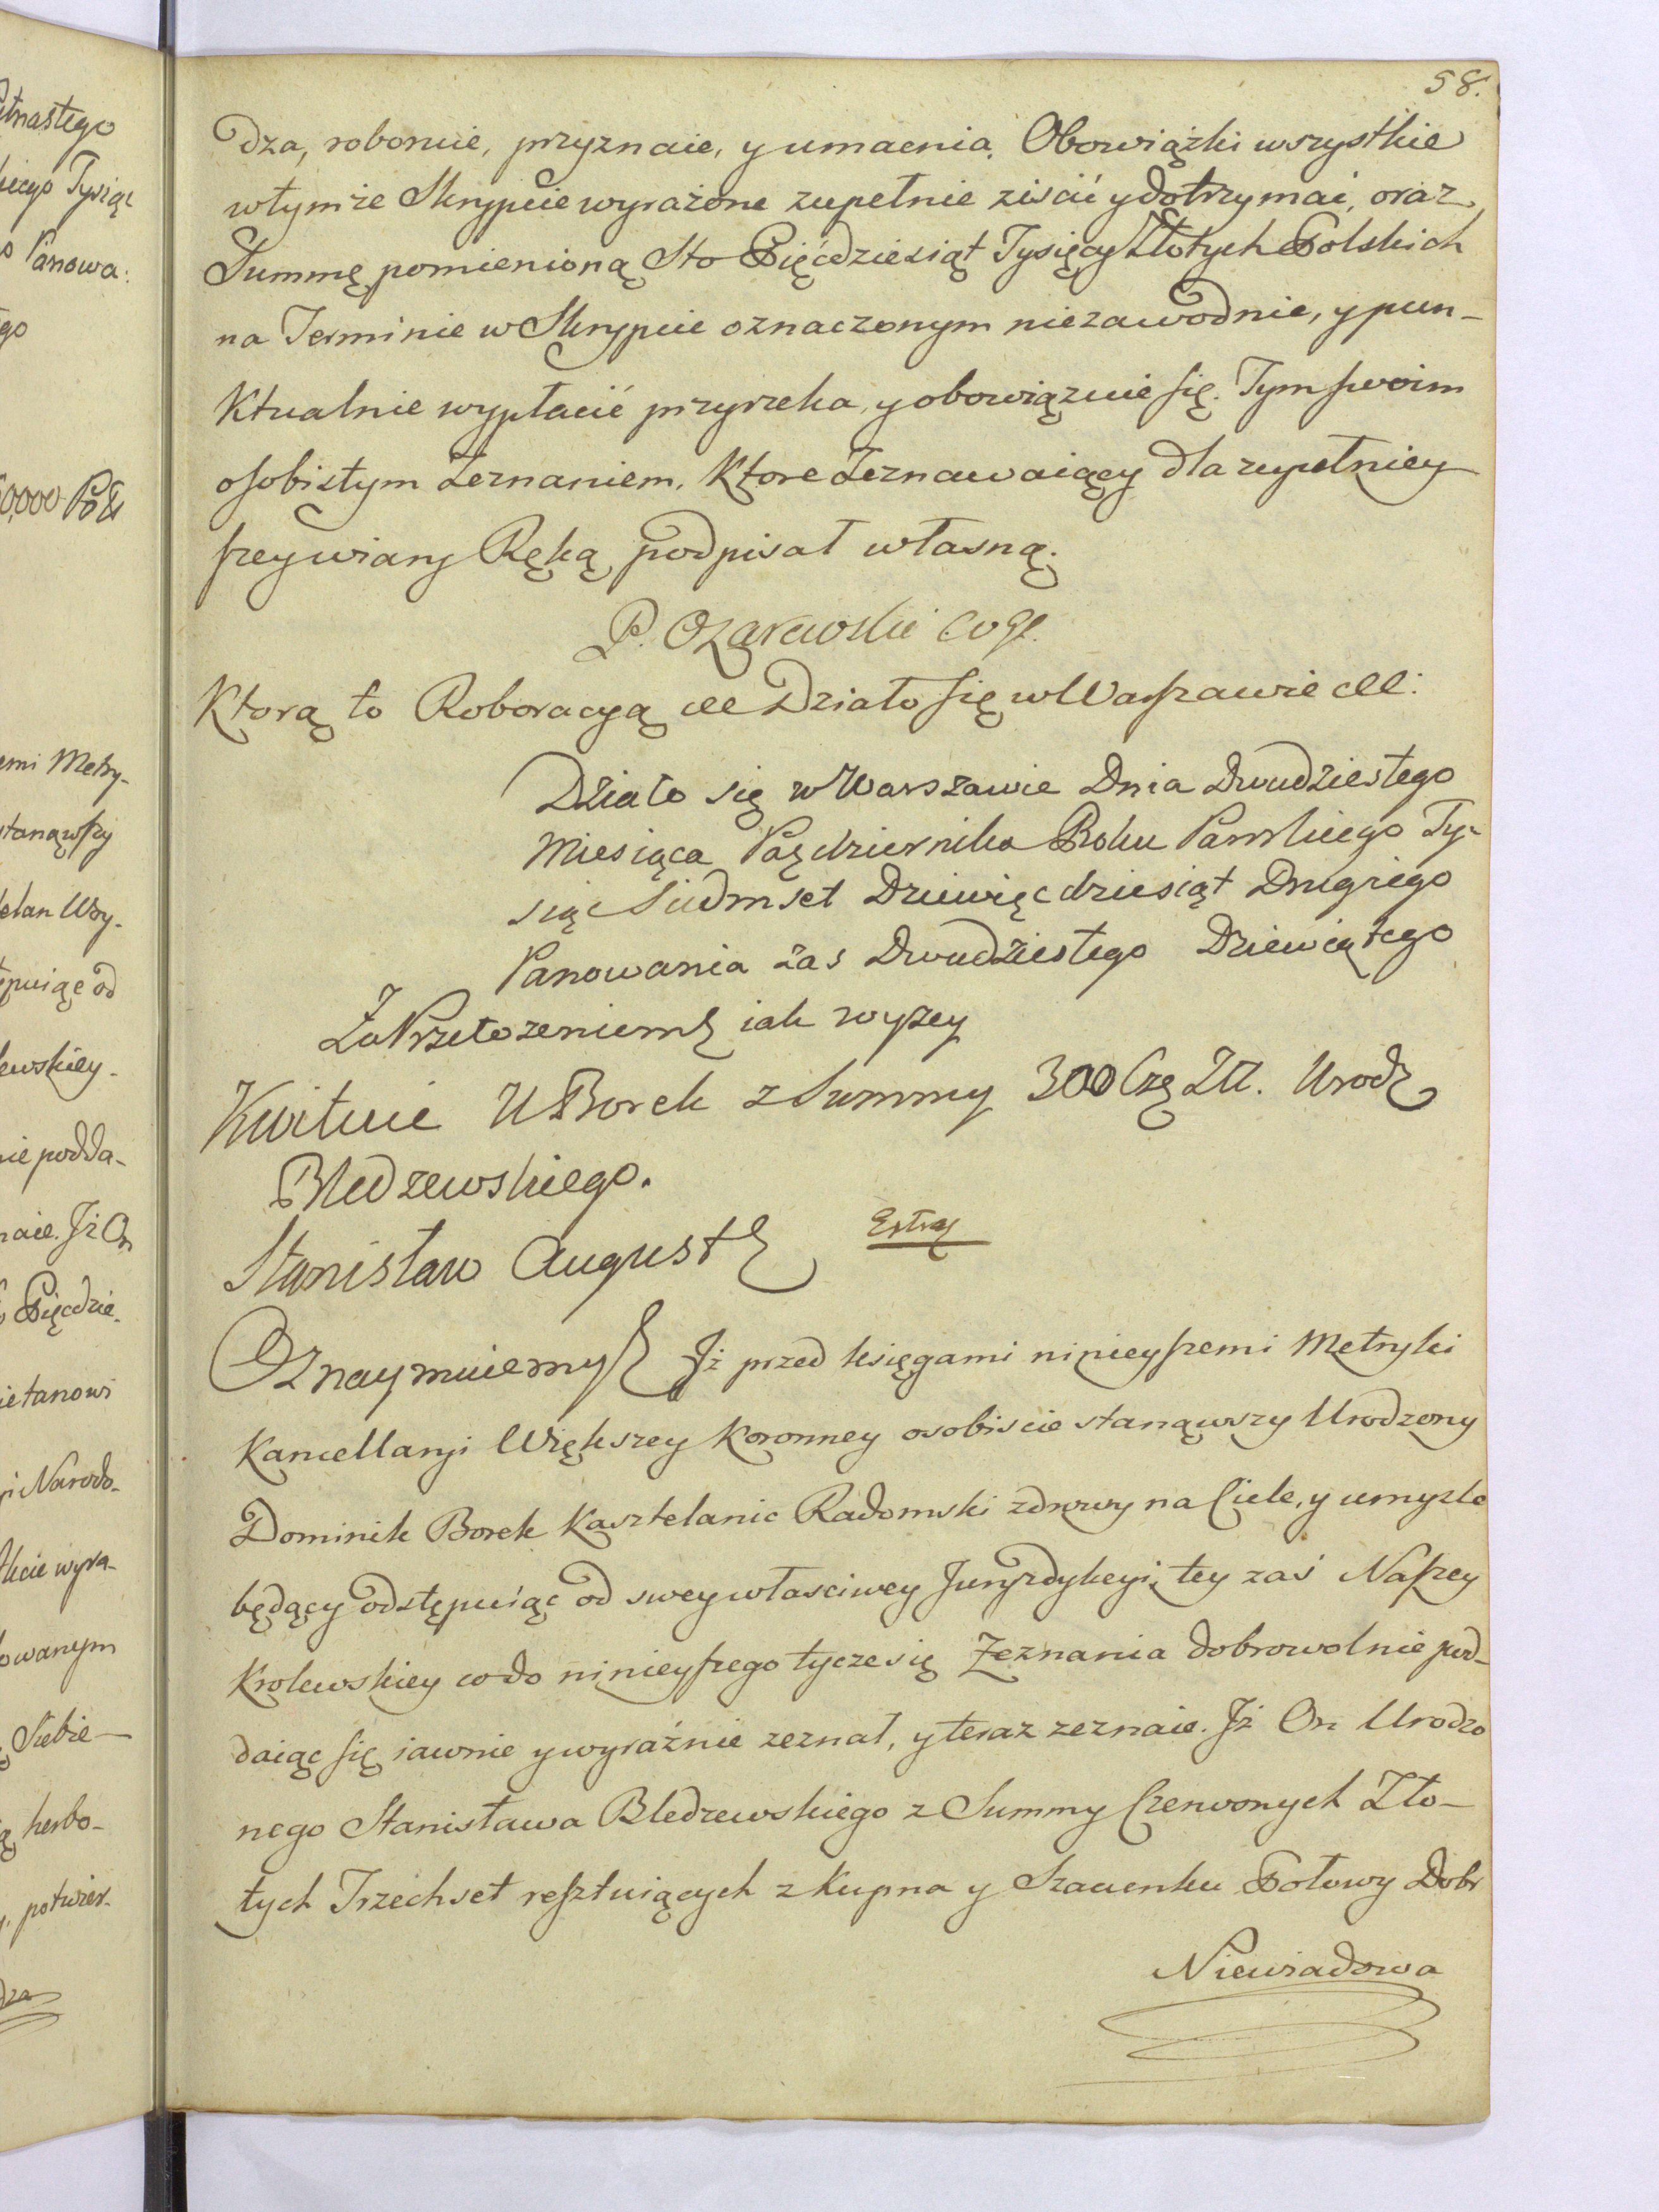 58.
dza, roboruie, przyznaie, y umacnia. Obowiązki wszystkie
w tymże Skrypcie wyrażone zupełnie ziścić y dotrzymać, oraz
Summę pomienioną Sto Pięćdziesiąt Tysięcy Złotych Polskich
na Terminie w Skrypcie oznaczonym niezawodnie, y pun-
ktualnie wypłacić przyrzeka, y obowiązuie się. Tym swoim
osobistym Zeznaniem, Ktore Zeznawaiący dla zupełniey
szey wiary Ręką podpisał własną.
P. Ożarowski
Ktorą to Roboracyą &c Działo się w Warszawie &c:
Działo się w Warszawie Dnia Dwudziestego
Miesiąca Października Roku Pańskiego Ty-
siąc Siedmset Dziewięcdziesiąt Drugiego
Panowania zas Dwudziestego Dziewiątego
Za Przełożeniem iak wyżey
Kwituie U Borek z Summy 300 Czę Zł. Urodz
Bledzewskiego.
Stanisław August Extra
Oznaymuiemy Jż przed księgami ninieyszemi Metryki
Kancellaryi Większey Koronney osobiscie stanąwszy Urodzony
Dominik Borek Kasztelanic Radomski zdrowy na Ciele, y umyśle
będący odstępuiąc od swey własciwey Juryzdykcyi, tey zaś Naszey
Krolewskiey co do ninieyszego tycze się Zeznania dobrowolnie pod-
daiąc się iawnie y wyraźnie zeznał, y teraz zeznaie. Jż On Urodzo
nego Stanisława Bledzewskiego z Summy Czerwonych Zło-
tych Trzechset resztuiących z Kupna y Szacunku Połowy Dobr
Niewiadowa